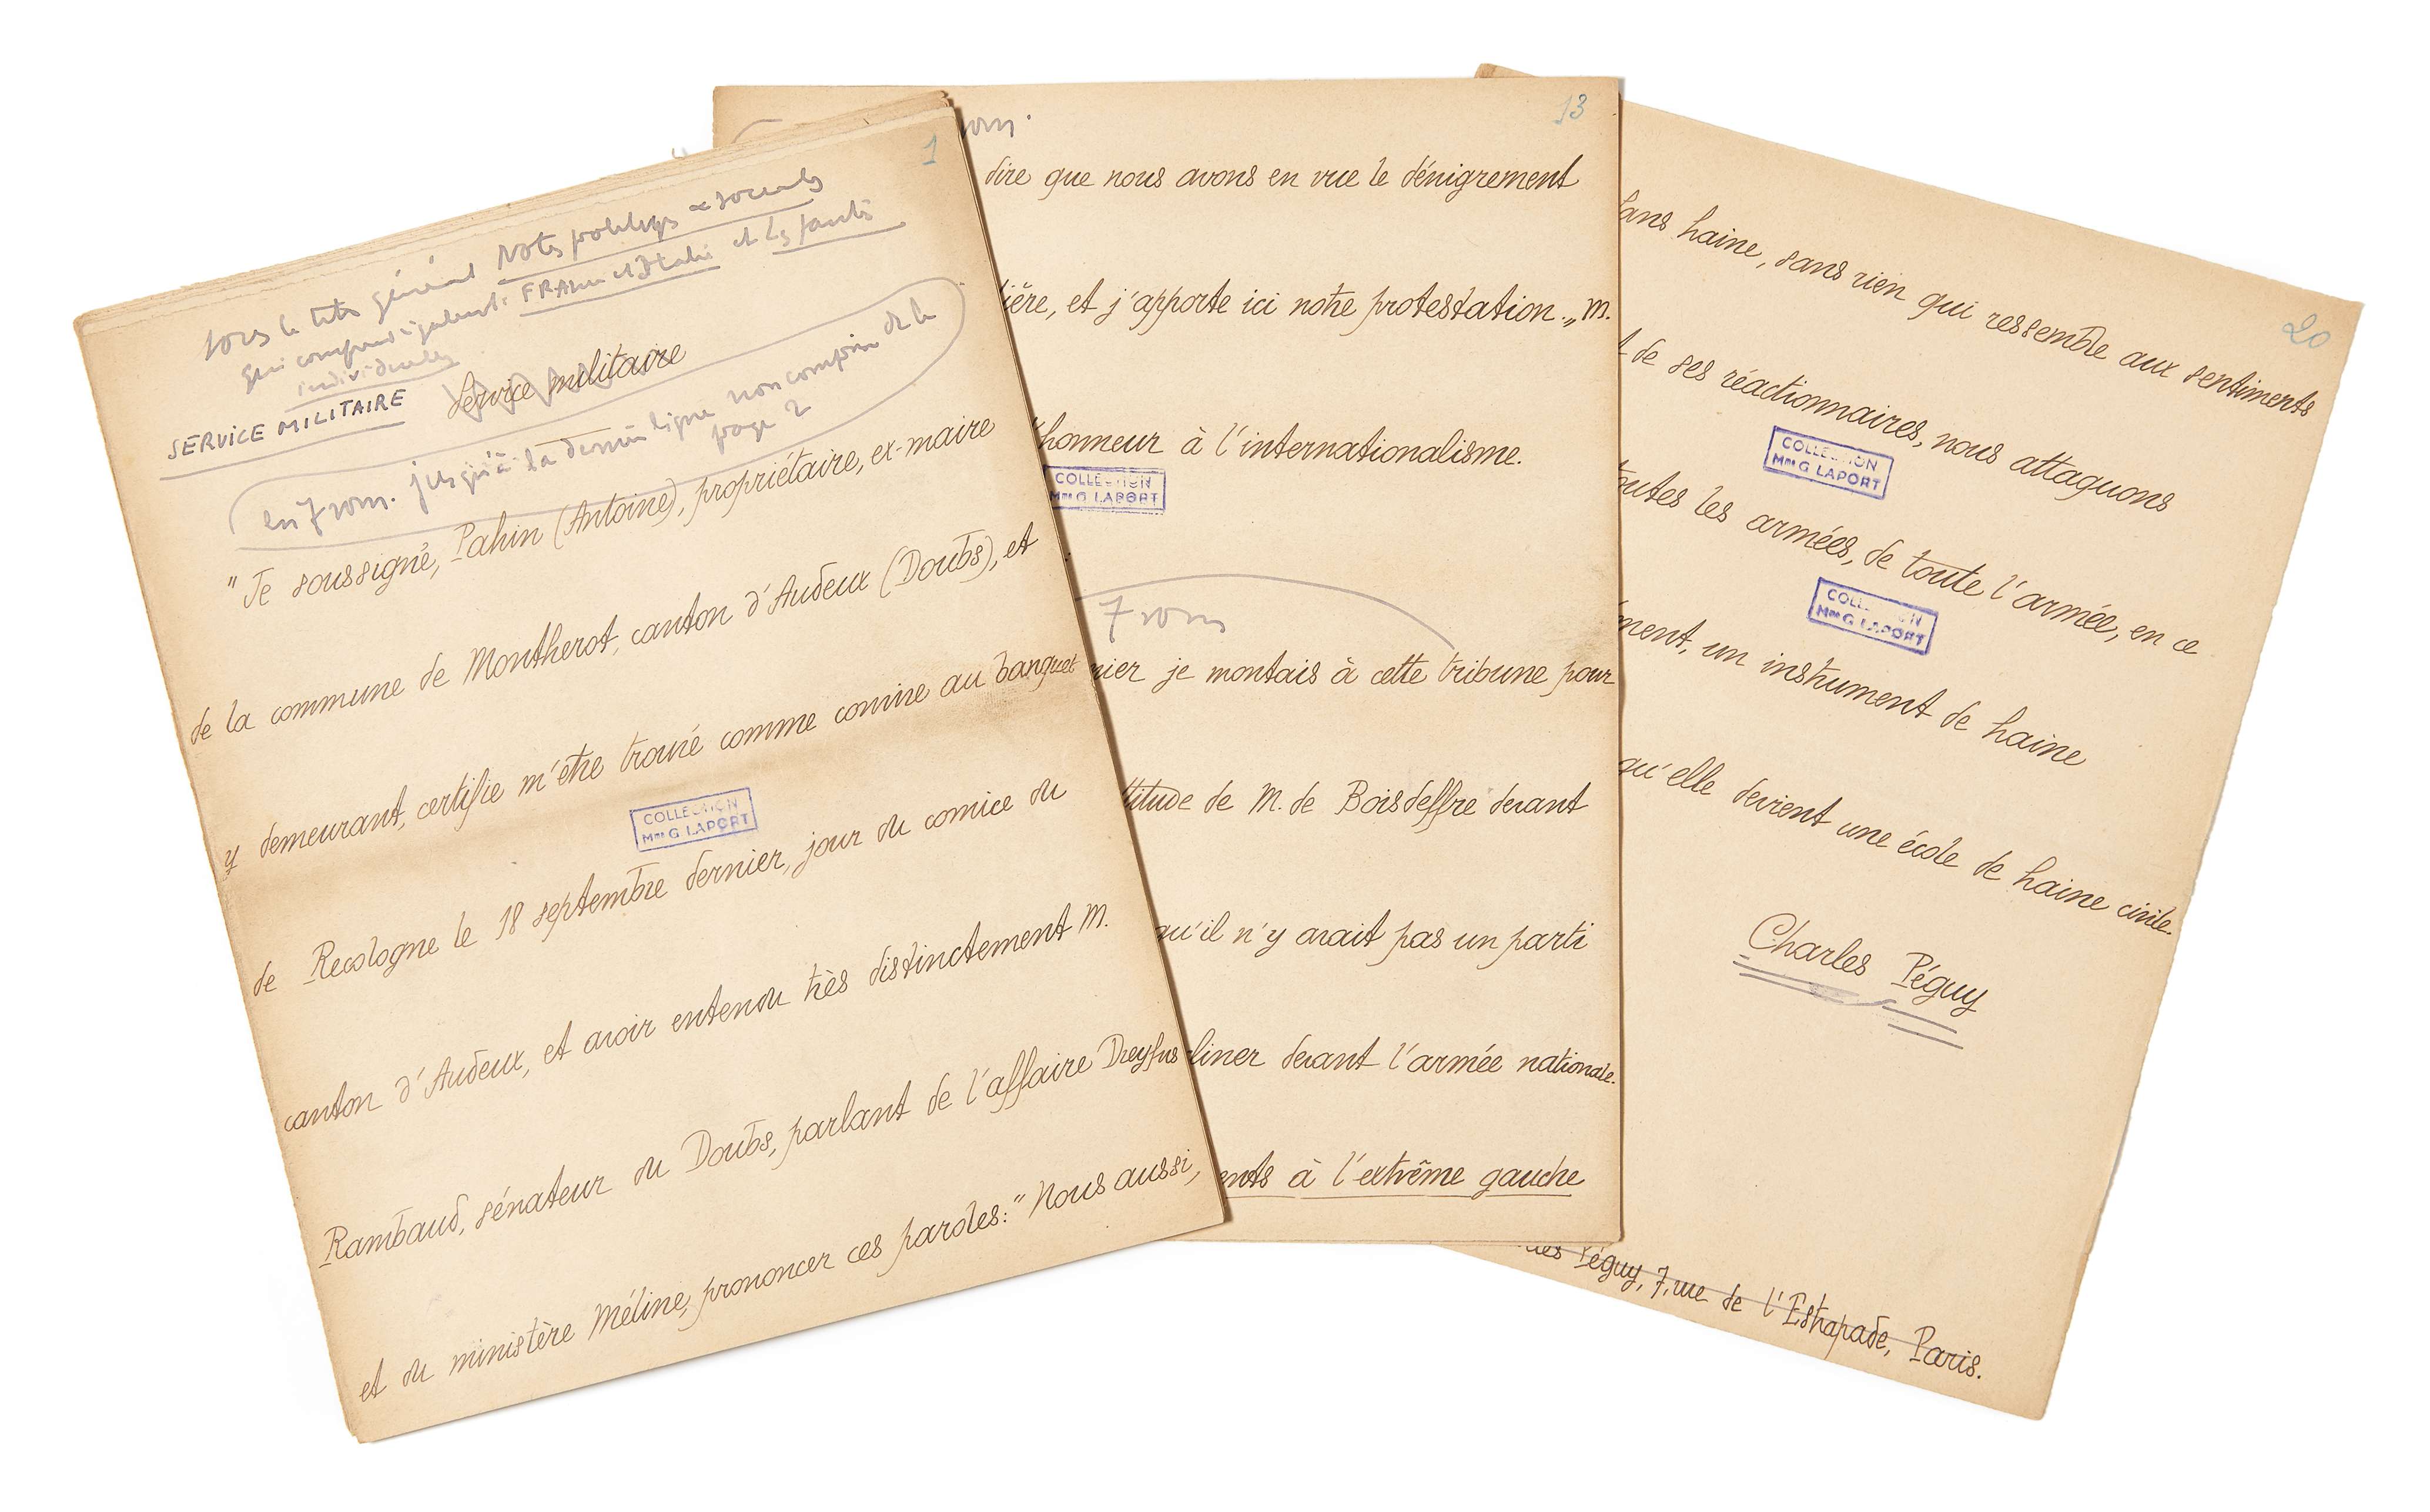 1
sous le titre général Notes politiques et sociales
qui comprend également: FRANCE et Italie et les fautes
individuelles
SERVICE MILITAIRE Service militaire
en 7 rom. jusqu'à la dernière ligne non comprise de la
page 2
"Je soussigné, Pahin (Antoine), propriétaire, ex-maire
de la commune de Montherot, canton d'Audeux (Doubs), et
y demeurant, certifie m'être trouvé comme convive au banquet
COLLECTION
Mme G LAPORT
de Recologne le 18 septembre dernier, jour du comice du
canton d'Audeux, et avoir entendu très distinctement M.
Rambaud, sénateur du Doubs, parlant de l'affaire Dreyfus
et du ministère Méline, prononcer ces paroles: "Nous aussi,
13
rom.
dire que nous avons en vue le dénigrement
ière, et j'apporte ici notre protestation.„ M.
honneur à l'internationalisme.
COLLECTION
Mme G LAPORT
7 rom
nier je montais à cette tribune pour
titude de M. de Boisdeffre devant
qu'il n'y avait pas un parti
liner devant l'armée nationale.
ents à l'extrême gauche
20
sans haine, sans rien qui ressemble aux sentiments
t de ses réactionnaires, nous attaquons
COLLECTION
Mme G LAPORT
toutes les armées, de toute l'armée, en ce
COLLECTION
Mme G LAPORT
ment, un instrument de haine
qu'elle devient une école de haine civile.
Charles Péguy
les Péguy, 7, rue de l'Estrapade, Paris.